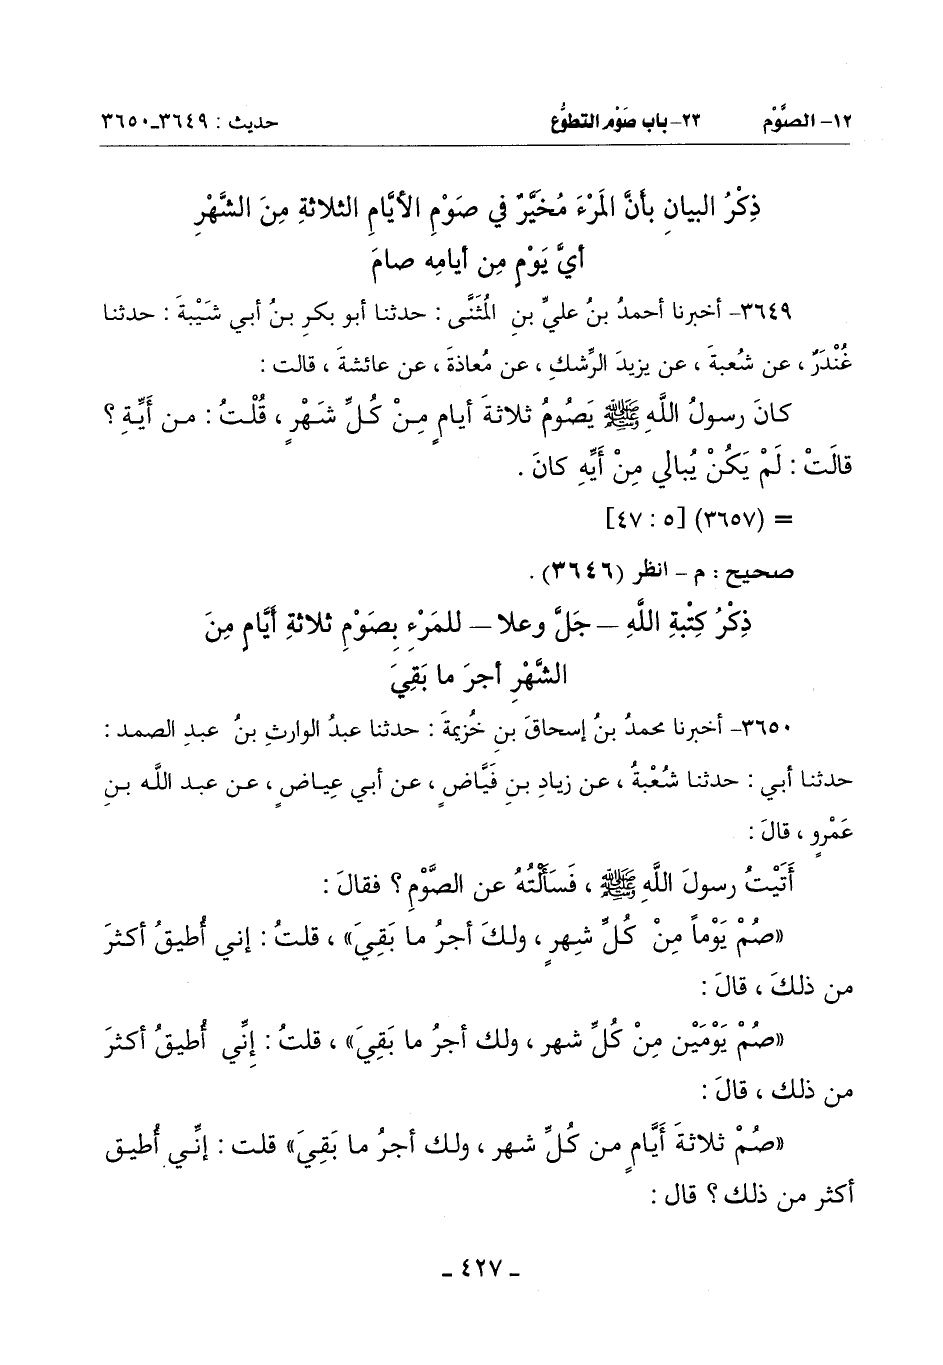 ١٢- الصَّوْم ٢٣- باب صَوْم التطوُّع حديث : ٣٦٤٩-٣٦٥٠
ذِكْرُ البيانِ بأنَّ المَرْءَ مُخَيَّرٌ في صَوْمِ الأيَّامِ الثلاثةِ مِنَ الشَّهْرِ
أيَّ يَوْمٍ مِن أيامِه صامَ
٣٦٤٩- أخبرنا أحمدُ بنُ عليِّ بنِ المُثَنَّى : حدثنا أبو بكرِ بنُ أبي شَيْبَةَ : حدثنا
غُنْدَرٌ ، عن شُعبةَ ، عن يزيدَ الرِّشكِ ، عن مُعاذةَ ، عن عائشةَ ، قالت :
كانَ رسولُ اللَّهِ ﷺ يَصُومُ ثلاثةَ أيامٍ مِنْ كُلِّ شَهْرٍ ، قُلْتُ : من أَيِّةِ ؟
قالَتْ : لَمْ يَكُنْ يُبالي مِنْ أَيِّهِ كانَ .
= (٣٦٥٧) [٥ : ٤٧]
صحيح : م - انظر (٣٦٤٦) .
ذِكْرُ كِتْبةِ اللَّهِ – جَلَّ وعلا – للمَرْءِ بصَوْمِ ثلاثةِ أيَّام مِنَ
الشَّهْرِ أجرَ ما بَقِيَ
٣٦٥٠- أخبرنا محمدُ بنُ إسحاقَ بنِ خُزيمةَ : حدثنا عبدُ الوارثِ بنُ عبدِ الصمد :
حدثنا أبي : حدثنا شُعْبةُ ، عن زيادِ بنِ فَيَّاضٍ ، عن أبي عِياضٍ ، عن عبد اللَّه بنِ
عَمْرٍو ، قالَ :
أَتَيْتُ رسولَ اللَّهِ ﷺ ، فَسَأَلْتُهُ عن الصَّوْمِ ؟ فقالَ :
«صُمْ يَوْماً مِنْ كُلِّ شهرٍ ، ولكَ أجرُ ما بَقِيَ» ، قلتُ : إني أُطيقُ أكثرَ
من ذلكَ ، قالَ :
«صُمْ يَوْمَيْنِ مِنْ كُلِّ شهر ، ولك أجرُ ما بَقِيَ» ، قلتُ : إنِّي أُطيقُ أكثرَ
من ذلك ، قالَ :
«صُمْ ثلاثةَ أيَّامٍ من كُلِّ شهر ، ولك أجرُ ما بَقِيَ» قلت : إنِّي أُطيق
أكثر من ذلك ؟ قال :
- ٤٢٧ -